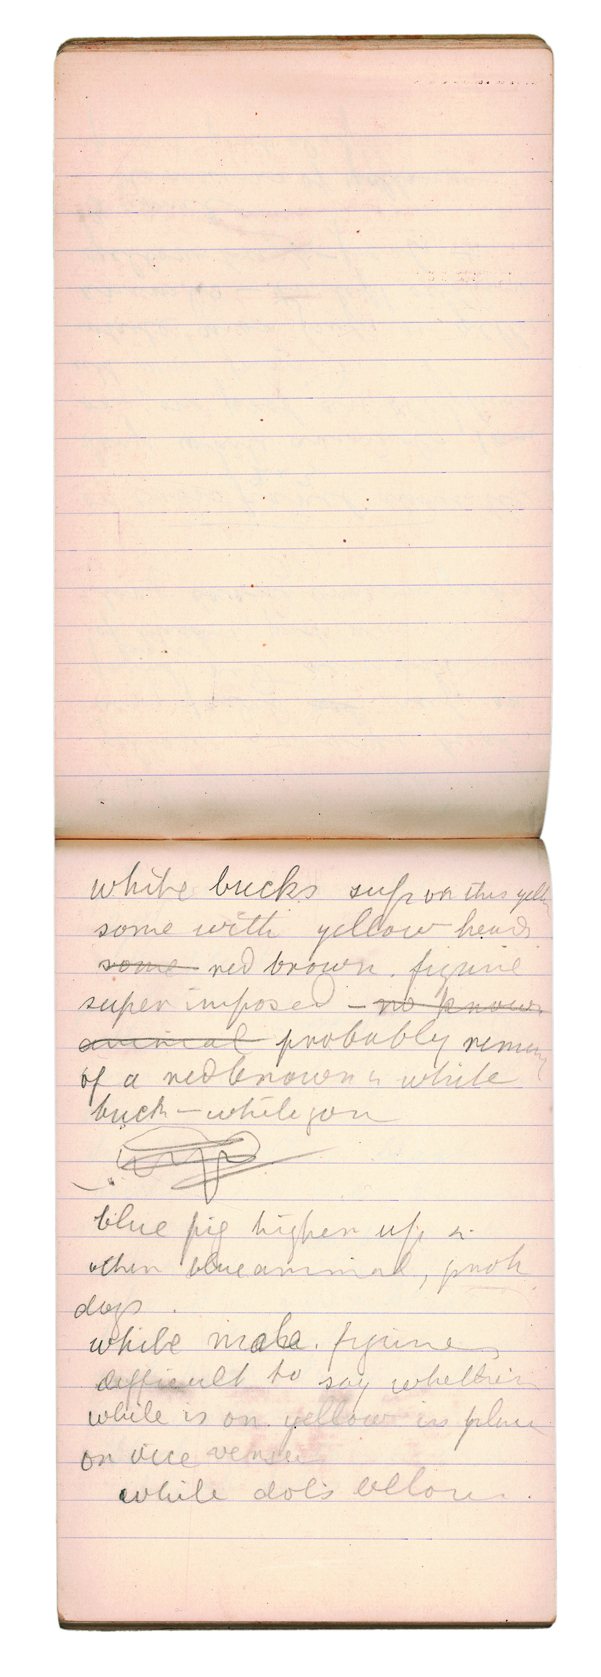 white bucks sup on this yell
some with yellow heads
some red brown. figure
super imposed – no known
animal probably remain
of a red brown & white
buck – white you
blue pig higher up &
other blue animal, prob
dogs.
white male. figure
difficult to say whether
white is on yellow in place
or vice versa
white dots below